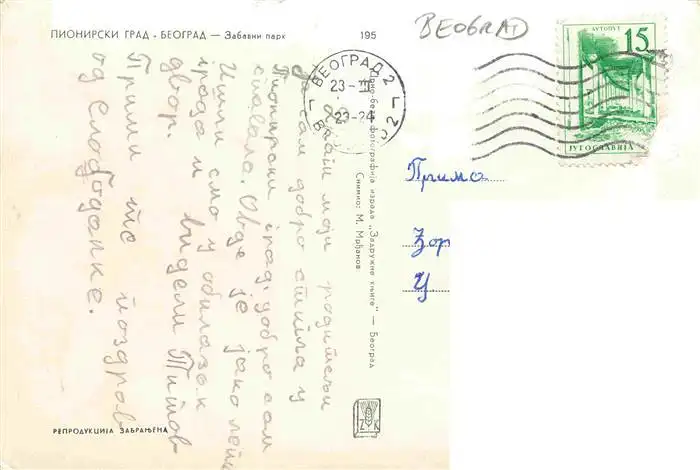 ПИОНИРСКИ ГРАД - БЕОГРАД — Забавни парк
195
BEOGRAD
АУТОПУТ
15
ЈУГОСЛАВИЈА
БЕОГРАД 2
23-III
23-24
Драги моји родитељи
Ја сам добро стигла у
Пионирски град, добро сам
спавала. Овде је јако леп
Ишли смо у обилазак
града и видели Титов
двор.
Прими те поздрав
од Слободанке.
Црно-бела фотографија израда „Задружне књиге" — Београд
Снимио: М. Мрђанов
Прима
Зор
У.
ЗК
РЕПРОДУКЦИЈА ЗАБРАЊЕНА